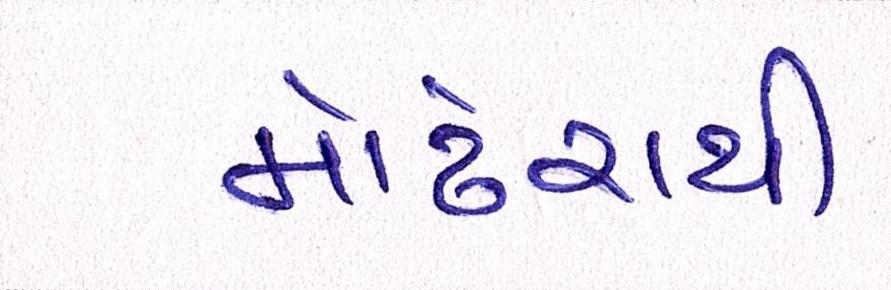 મોઢેરાથી